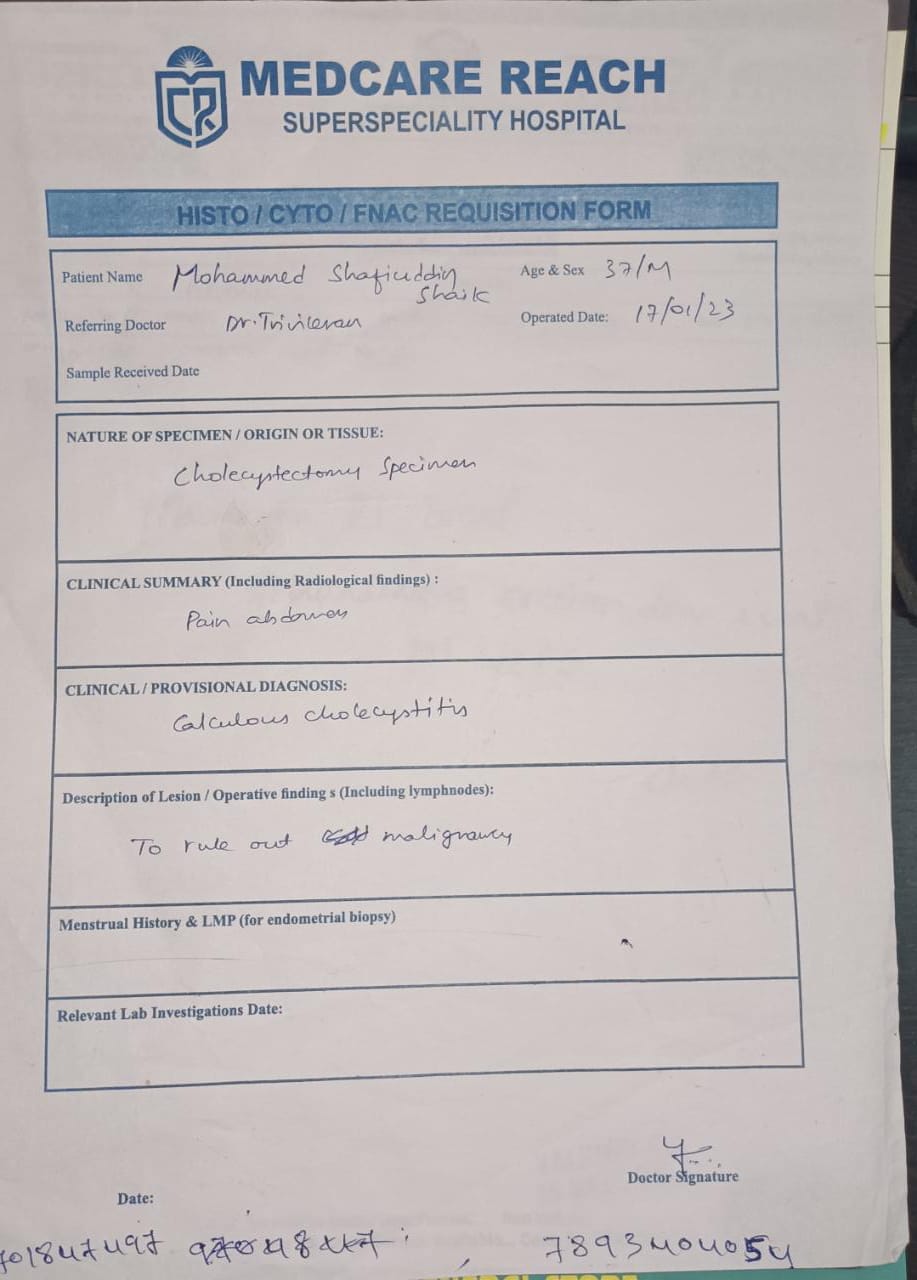 MEDCARE REACH
SUPERSPECIALITY HOSPITAL
HISTO / CYTO / FNAC REQUISITION FORM
Patient Name Mohammed Shafiuddin Shaik
Age & Sex 37/M
Referring Doctor Dr.
Operated Date: 17/01/23
Sample Received Date
NATURE OF SPECIMEN / ORIGIN OR TISSUE:
Cholecystectomy Specimen
CLINICAL SUMMARY (Including Radiological findings) :
Pain abdomen
CLINICAL / PROVISIONAL DIAGNOSIS:
Calculous cholecystitis
Description of Lesion / Operative finding s (Including lymphnodes):
To rule out malignancy
Menstrual History & LMP (for endometrial biopsy)
Relevant Lab Investigations Date:
Doctor Signature
Date:
7893404054